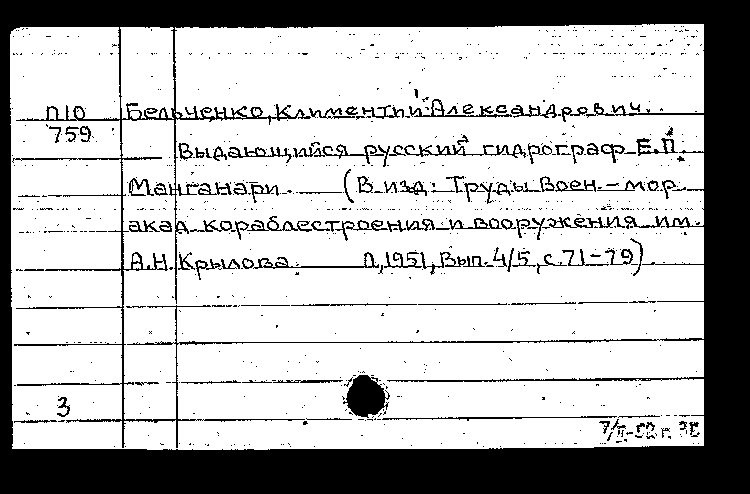 П10 Бельченко, Климентий Александрович.
759
Выдающийся русский гидрограф Е.П.
Манганари. (В изд: Труды Воен.-мор.
акад. кораблестроения и вооружения им.
А.Н. Крылова. Л, 1951, Вып. 4/5, с. 71-79).
3
7/II-52 г.